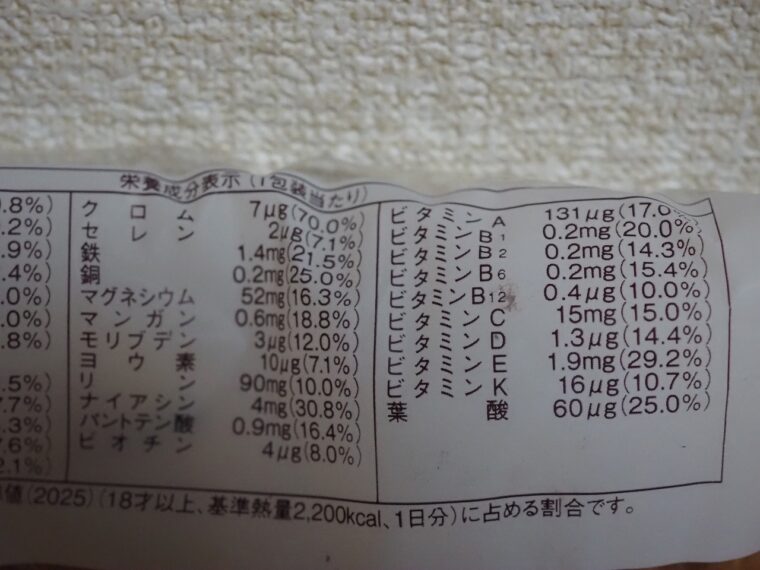 栄養成分表示（1包装当たり）
.8%)
.2%)
.9%)
.4%)
.0%)
.0%)
.8%)
.5%)
.7%)
.3%)
.6%)
2.1%)
クロム 7μg(70.0%)
セレン 2μg(7.1%)
鉄 1.4mg(21.5%)
銅 0.2mg(25.0%)
マグネシウム 52mg(16.3%)
マンガン 0.6mg(18.8%)
モリブデン 3μg(12.0%)
ヨウ素 10μg(7.1%)
リン 90mg(10.0%)
ナイアシン 4mg(30.8%)
パントテン酸 0.9mg(16.4%)
ビオチン 4μg(8.0%)
ビタミンA 131μg(17.0%)
ビタミンB1 0.2mg(20.0%)
ビタミンB2 0.2mg(14.3%)
ビタミンB6 0.2mg(15.4%)
ビタミンB12 0.4μg(10.0%)
ビタミンC 15mg(15.0%)
ビタミンD 1.3μg(14.4%)
ビタミンE 1.9mg(29.2%)
ビタミンK 16μg(10.7%)
葉酸 60μg(25.0%)
値(2025)(18才以上、基準熱量2,200kcal、1日分)に占める割合です。